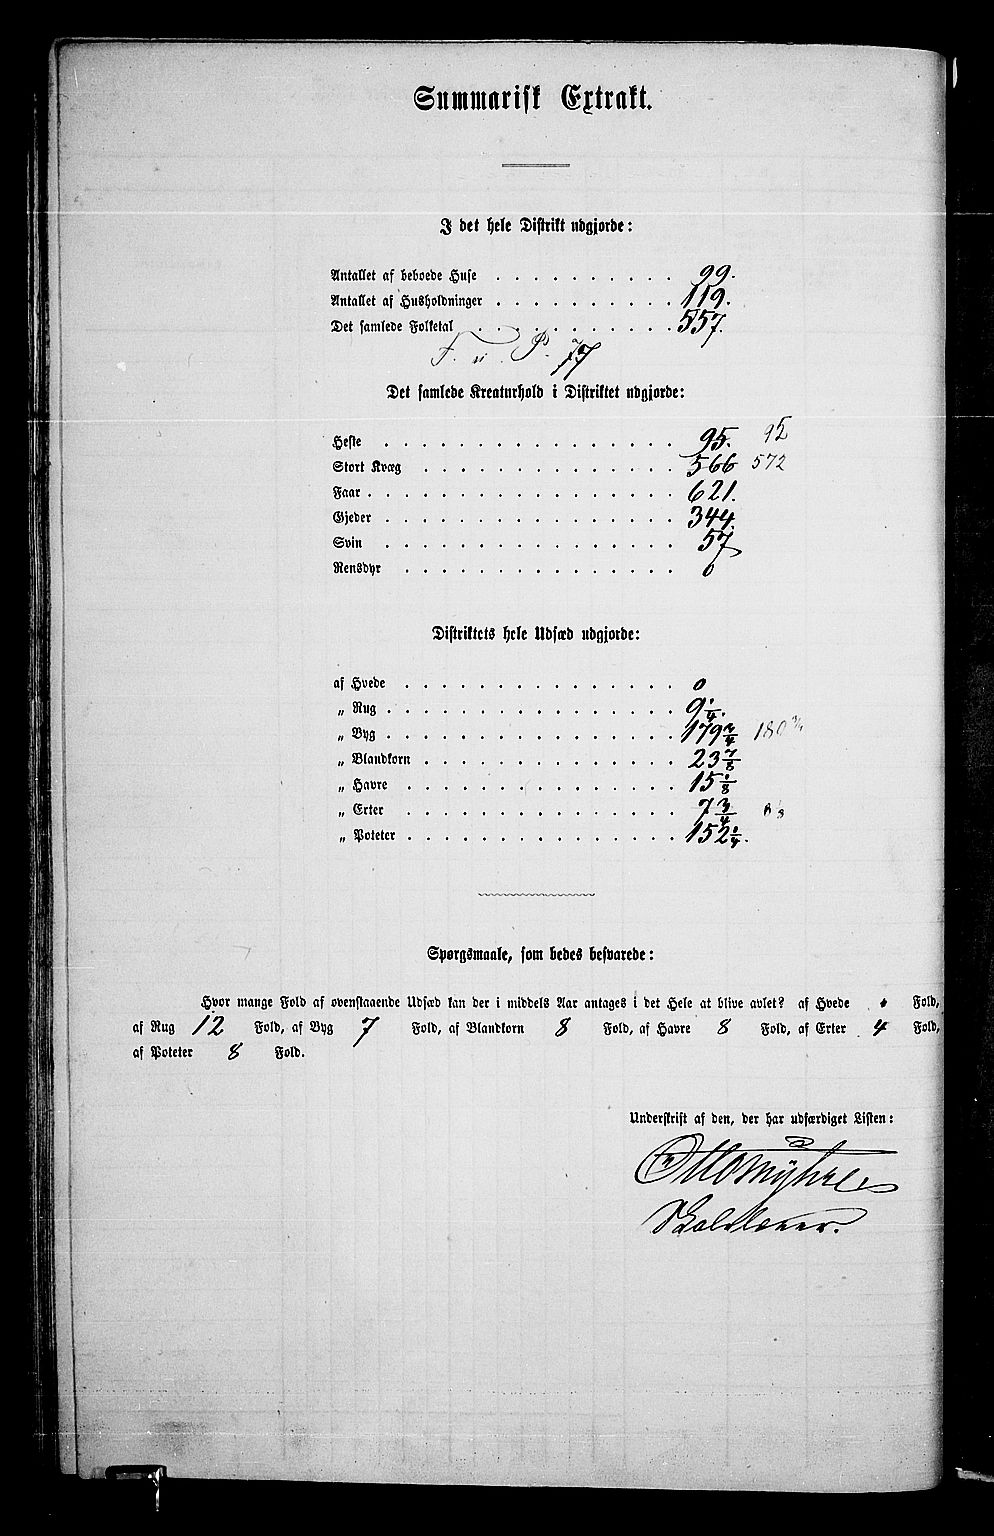 Summarisk Extrakt.
I det hele Distrikt udgjorde:
Antallet af beboede Huse . . . . . . . . . . 99.
Antallet af Husholdninger . . . . . . . . . . 119.
Det samlede Folketal . . . . . . . . . . . 557.
F. P. 77
Det samlede Kreaturhold i Distriktet udgjorde:
Heste . . . . . . . . . . . . . . . . 95. 95
Stort Kvæg . . . . . . . . . . . . . . 566 572
Faar . . . . . . . . . . . . . . . . . 621.
Gjeder . . . . . . . . . . . . . . . . 344.
Svin . . . . . . . . . . . . . . . . 57
Rensdyr . . . . . . . . . . . . . . . 0
Distriktets hele Udsæd udgjorde:
af Hvede . . . . . . . . . . . . . . . 0
„ Rug . . . . . . . . . . . . . . . . 9 1/4.
„ Byg . . . . . . . . . . . . . . . . 179 3/4 180 3/4
„ Blandkorn . . . . . . . . . . . . . . 23 7/8
„ Havre . . . . . . . . . . . . . . . 15 1/8
„ Erter . . . . . . . . . . . . . . . 7 3/4 8 1/8
„ Poteter . . . . . . . . . . . . . . . 152 1/4.
Spørgsmaale, som bedes besvarede:
Hvor mange Fold af ovenstaaende Udsæd kan der i middels Aar antages i det Hele at blive avlet? af Hvede Fold,
af Rug 12 Fold, af Byg 7 Fold, af Blandkorn 8 Fold, af Havre 8 Fold, af Erter 4 Fold,
af Poteter 8 Fold.
Underskrift af den, der har udfærdiget Listen:
Otto Myhre
Skolelærer.